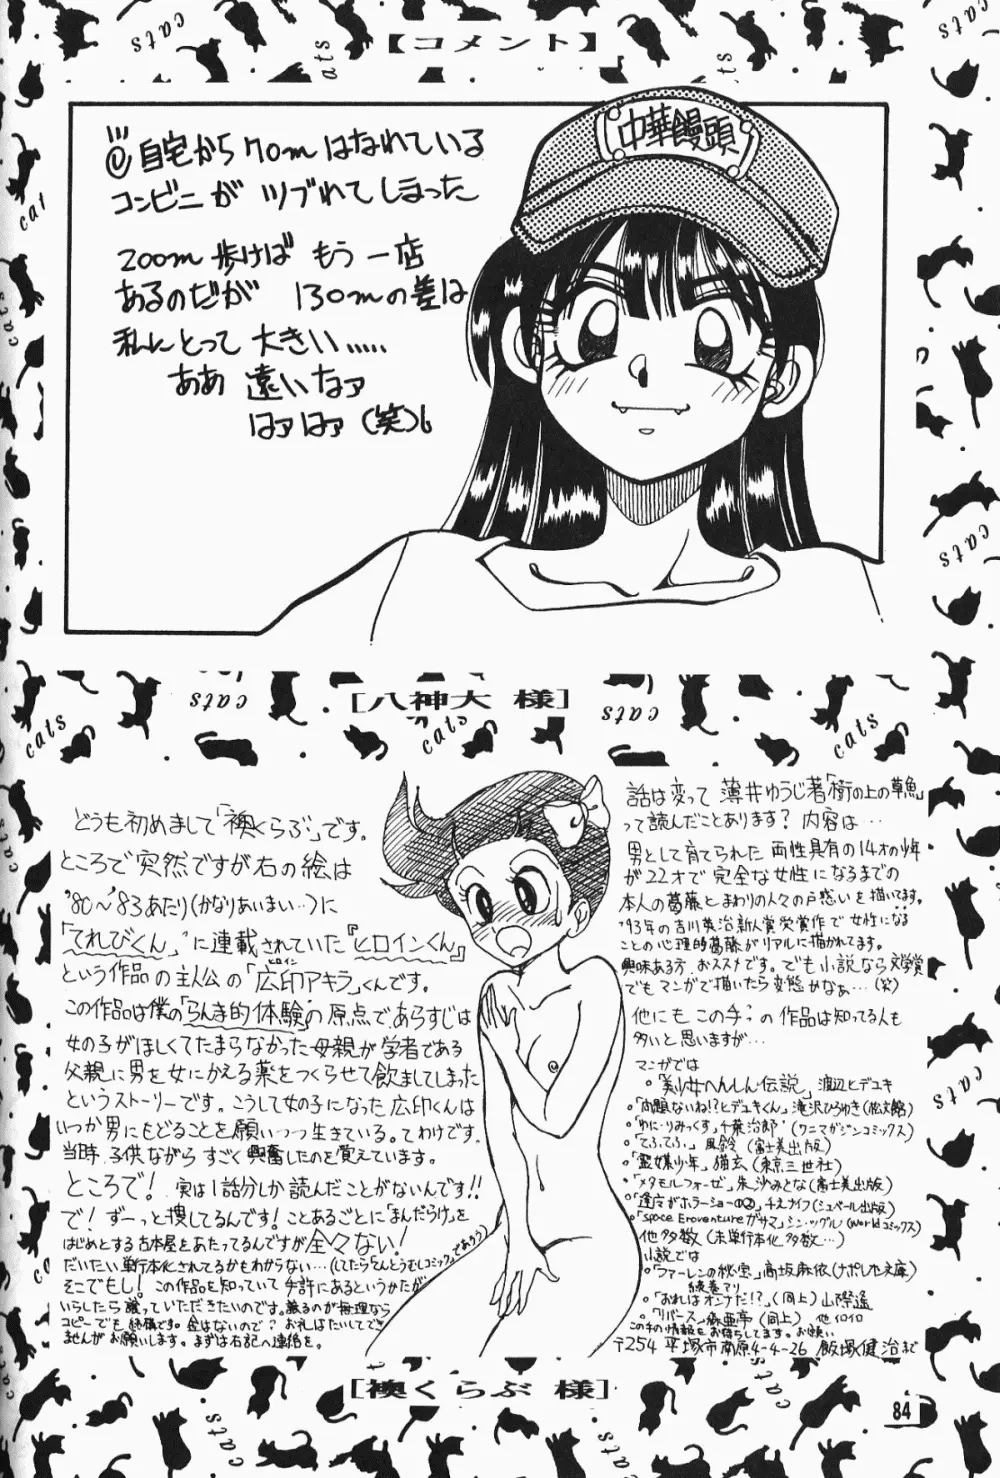 【コメント】
中華饅頭
自宅から70mはなれている
コンビニが ツブれてしまった
200m歩けば もう一店
あるのだが 130mの差は
私にとって 大きい.....
ああ 遠いなァ
はァはァ(笑)
[八神大 様]
どうも初めまして「襖くらぶ」です。
ところで突然ですが右の絵は
'80〜'83あたり(かなりあいまい…)に
「てれびくん」に連載されていた『ヒロインくん』
という作品の主人公の「広印アキラ」くんです。
ヒロイン
この作品は僕の「らんま的体験」の原点で、あらすじは
女の子がほしくてたまらなかった母親が学者である
父親に男を女にかえる薬をつくらせて飲ましてしまった
というストーリーです。こうして女の子になった広印くんは
いつか男にもどることを願いつつ生きている。てわけです。
当時、子供ながらすごく興奮したのを覚えています。
ところで! 実は1話分しか読んだことがないんです!!
で! ずーっと捜してるんです! ことあるごとに「まんだらけ」を
はじめとする古本屋をあたってるんですが全々ない!
だいたい単行本化されてるかもわからない…(してたらてんとうむしコミックであろう)
そこでもし! この作品を知っていて手許にあるというかたが
いらしたら譲っていただきたいのです。譲るのが無理なら
コピーでも結構です。金はないので? お礼はたいしてでき
ませんがお願いします。まずは右記へ連絡を。
話は変って 薄井ゆうじ著「樹の上の草魚」
って読んだことあります? 内容は…
男として育てられた 両性具有の14才の少年
が22才で 完全な女性になるまでの
本人の葛藤とまわりの人々の戸惑いを描いてます。
'93年の吉川英治新人賞受賞作で女性になる
ことの心理的葛藤がリアルに描かれてます。
興味ある方、おススメです。でも小説なら文学賞
でもマンガで描いたら変態かなぁ…(笑)
他にも この手の作品は知ってる人も
多いと思いますが…
マンガでは
。「美少女へんしん伝説」渡辺ヒデユキ
。「問題ないね!?ヒデユキくん」滝沢ひろゆき(松文館)
。「ゆに・りみっくす」千葉治郎(ワニマガジンコミックス)
。「てふてふ」風鈴(富士美出版)
。「霊媒少年」猫玄(東京三世社)
。「メタモルフォーゼ」朱沙みとな(富士美出版)
。「逢摩がホラーショーの②」チエナイフ(シュベール出版)
。「Space Eroventureガサマ」シン・ツグル(Worldコミックス)
他多数(未単行本化多数…)
小説では
。「ファーレンの秘宝」高坂麻依(ナポレオン文庫)
続巻アリ
。「おれはオンナだ!?」(同上)山際遙
。「リバース」森亜亭(同上) 他イロイロ
この手の情報をお待ちしてます。お願い
〒254 平塚市南原4-4-26 飯塚健治まで
[襖くらぶ 様]
84
cats